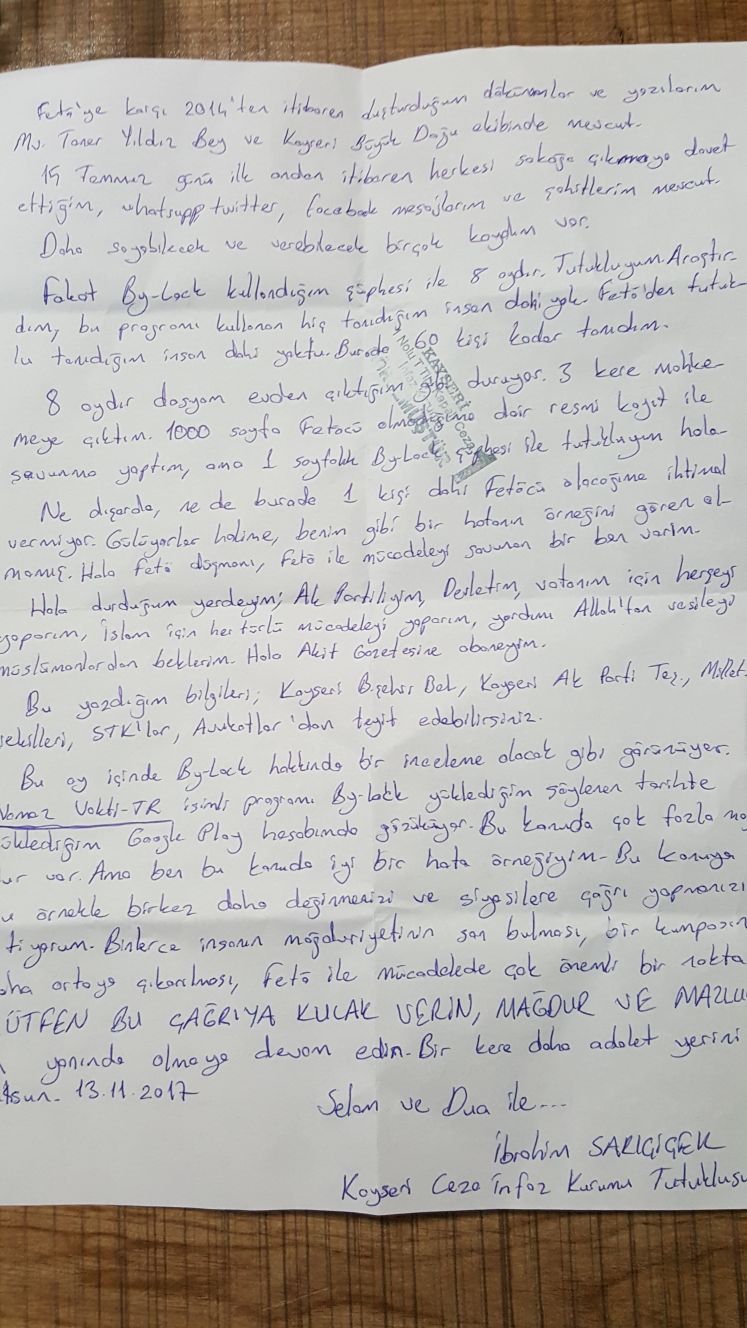 Fetö'ye karşı 2014'ten itibaren duşturduğum dökümanlar ve yazılarım
Mv. Taner Yıldız Bey ve Kayseri Büyük Doğu ekibinde mevcut.
15 Temmuz günü ilk andan itibaren herkesi sokağa çıkmaya davet
ettiğim, whatsupp twitter, facebook mesajlarım ve şahitlerim mevcut.
Daha sayabilecek ve verebilecek birçok kaydım var.
Fakat By-Lock kullandığım şüphesi ile 8 aydır. Tutukluyum. Araştır-
dım, bu programı kullanan hiç tanıdığım insan dahi yok. Fetö'den tutuk-
lu tanıdığım insan dahi yoktu. Burada 60 kişi kadar tanıdım.
8 aydır dosyam evden çıktığım gibi duruyor. 3 kere mahke-
meye çıktım. 1000 sayfa Fetöcü olmadığıma dair resmi kayıt ile
savunma yaptım, ama 1 sayfalık By-Lock şüphesi ile tutukluyum hala.
Ne dışarda, ne de burada 1 kişi dahi Fetöcü olacağıma ihtimal
vermiyor. Gülüyorlar halime, benim gibi bir hatanın örneğini gören ol-
mamış. Hala Fetö düşmanı, Fetö ile mücadeleyi savunan bir ben varım.
Hala durduğum yerdeyim; Ak Partiliyim, Devletim, vatanım için herşeyi
yaparım, İslam için her türlü mücadeleyi yaparım, yardımı Allah'tan vesileyi
müslümanlardan beklerim. Hala Akit Gazetesine aboneyim.
Bu yazdığım bilgileri; Kayseri B.şehir Bel, Kayseri Ak Parti Teş., Millet-
vekilleri, STK'lar, Avukatlar'dan teyit edebilirsiniz.
Bu ay içinde By-Lock hakkında bir inceleme olacak gibi görünüyor.
Namaz Vakti-TR isimli programı By-lock yüklediğim söylenen tarihte
üklediğim Google Play hesabımda gözüküyor. Bu konuda çok fazla mağ
ur var. Ama ben bu konuda iyi bir hata örneğiyim. Bu konuya
u örnekle birkez daha değinmenizi ve siyasilere çağrı yapmanızı
tiyorum. Binlerce insanın mağduriyetinin son bulması, bir kumpasın
aha ortaya çıkarılması, Fetö ile mücadelede çok önemli bir nokta
ÜTFEN BU ÇAĞRIYA KULAK VERİN, MAĞDUR VE MAZLU
yanında olmaya devam edin. Bir kere daha adalet yerini
lsun. 13.11.2017
Selam ve Dua ile...
İbrahim SARIÇİÇEK
Kayseri Ceza İnfaz Kurumu Tutuklusu